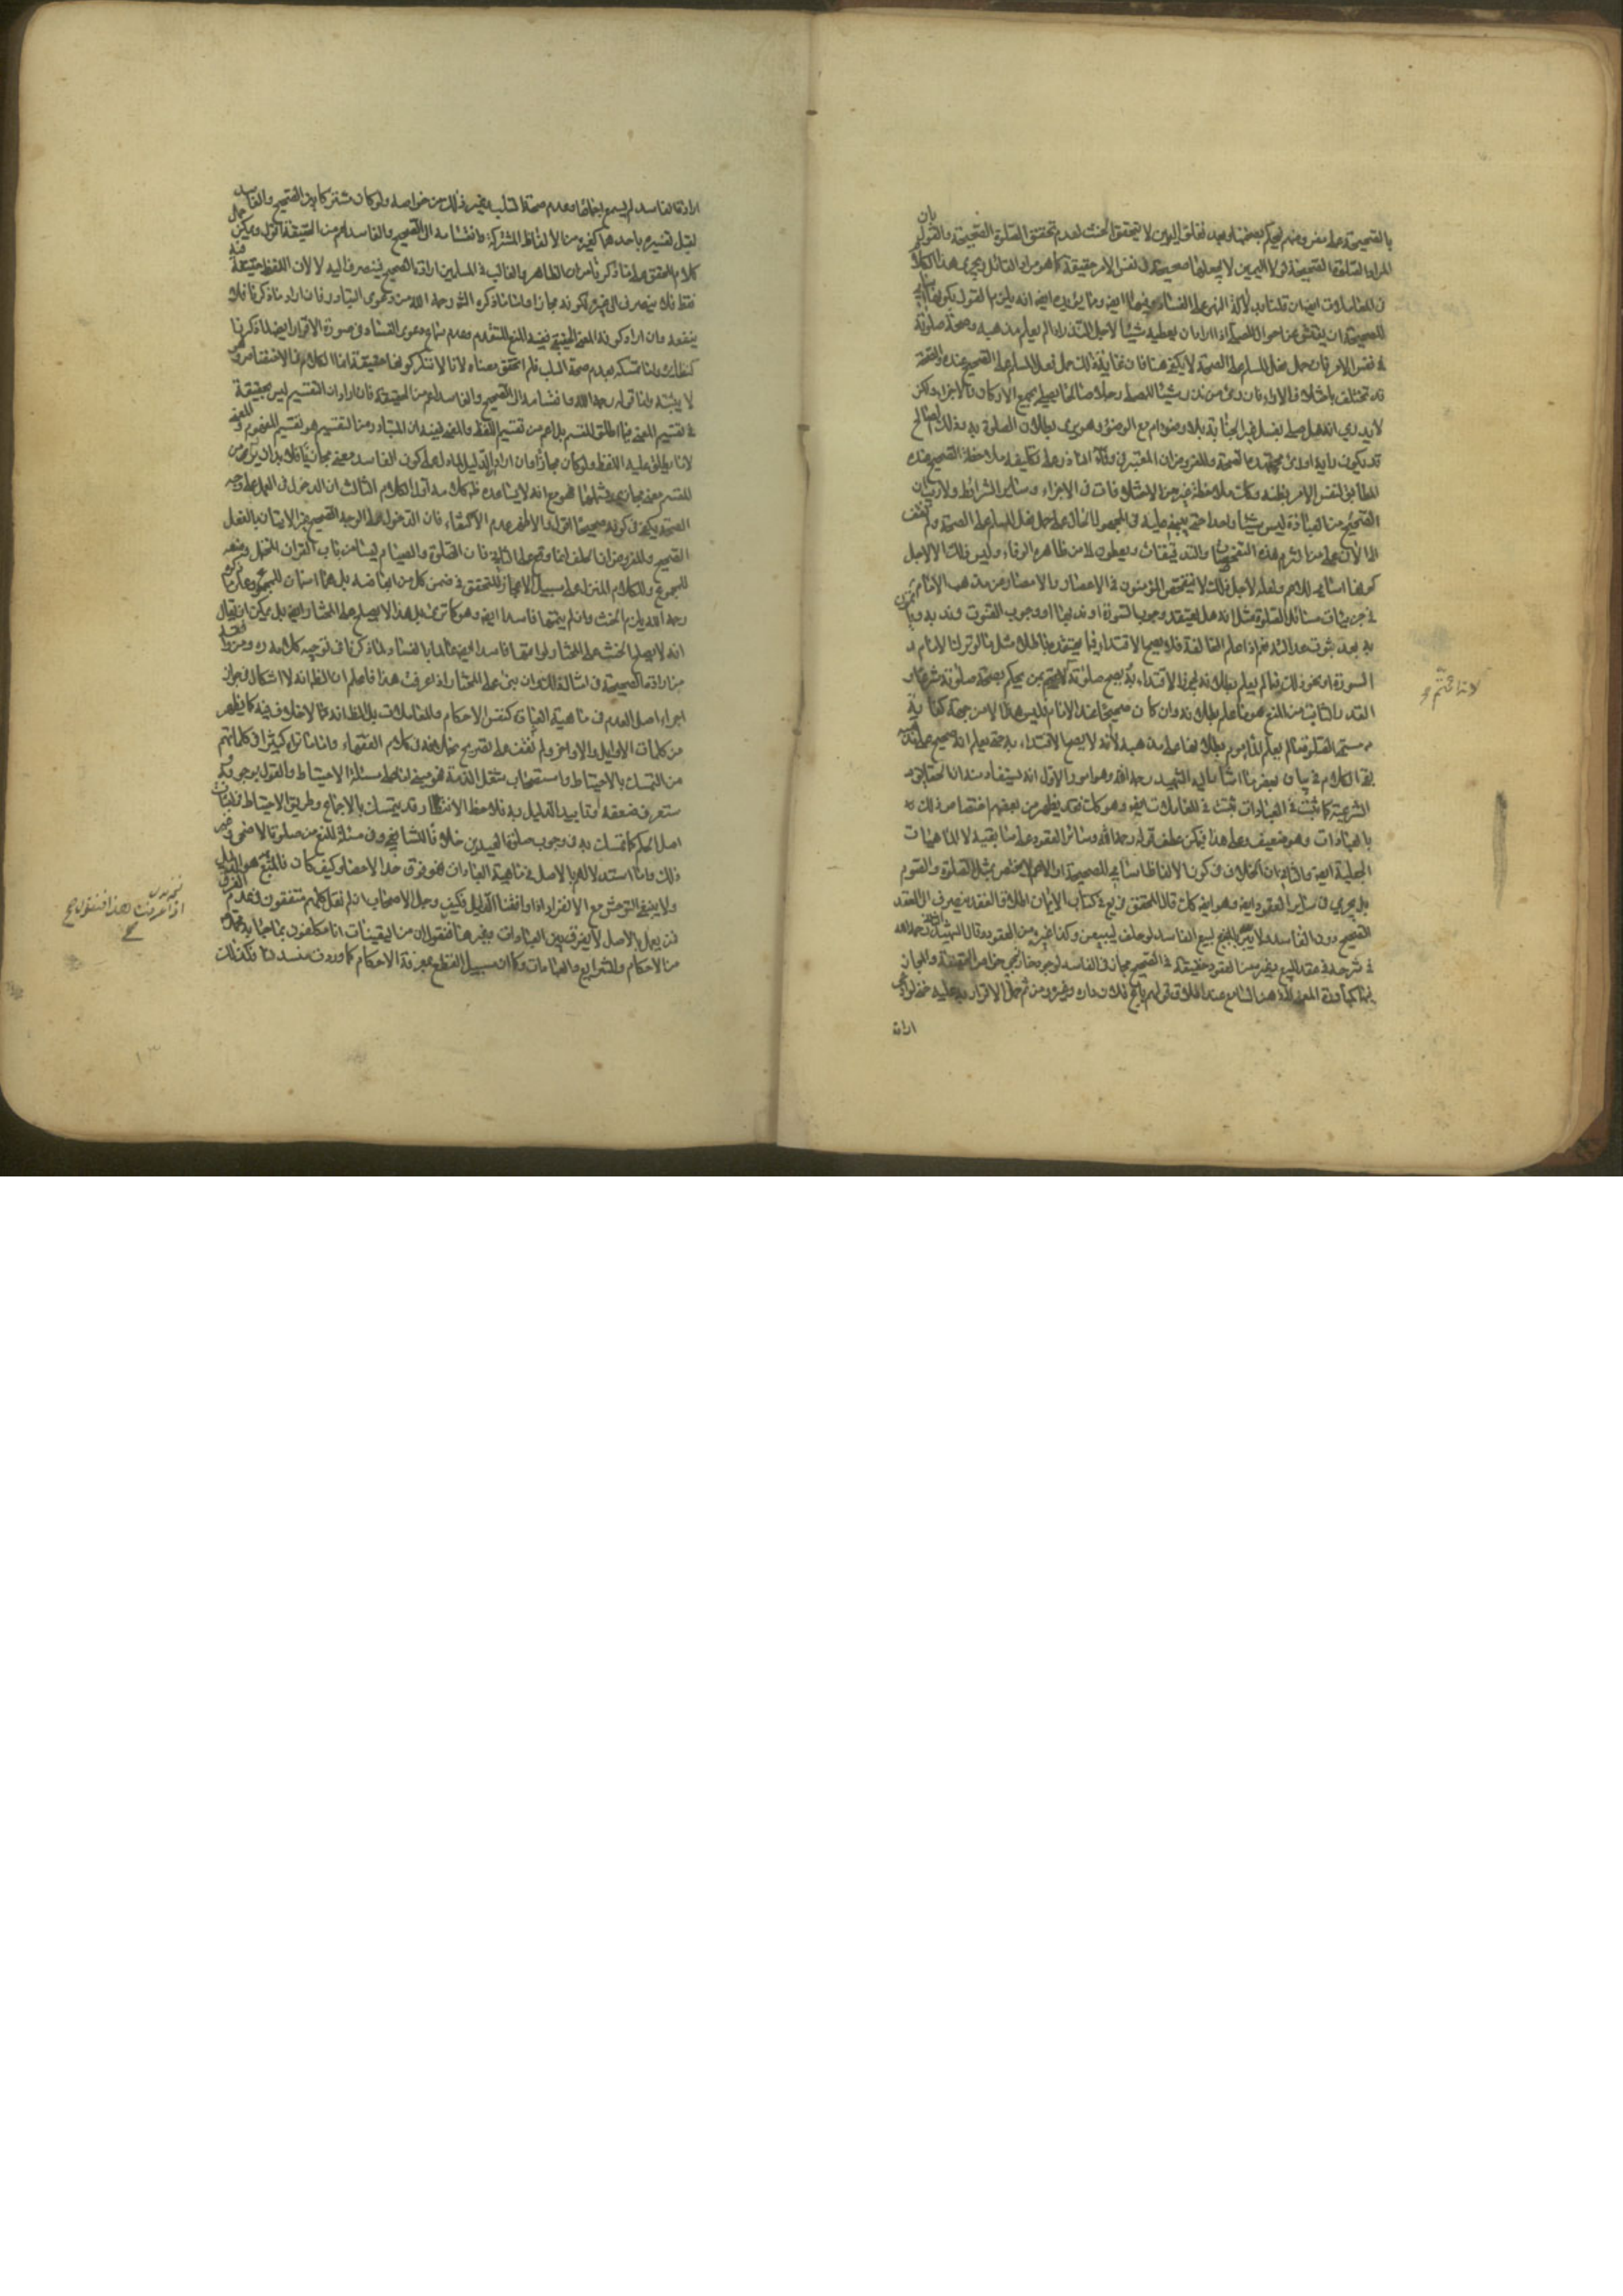 بالصحيحة على مفروضهم يحكم بصحتها وبعد تعلق اليمين لا يتحقق الحنث لعدم تحقق الصلوة الصحيحة والقول بان
المراد الصلوة الصحيحة لو لا اليمين لا يجعلها صحيحة في نفس الامر حقيقة كما هو مراد القائل ويجري هذا الكلام
في المعاملات ايضا ان قلنا بدلالة النهي على الفساد فيها ايضا ومما يؤيده ايضا انه يلزم القول بكونها
للصحيحة ان يفتش عن احوال المصلي اذا اراد ان يعطيه شيئا لاجل النذر اذا لم يعلم مذهبه وصحة صلوته
في نفس الامر فان حمل فعل المسلم على الصحة لا يكفي هنا فان غاية ذلك حمل فعل المسلم على الصحيح عنده والصحة
قد تختلف باختلاف الآراء فان رأى من نذر شيئا للمصلي رجلا صالحا يصلي بجميع الاركان والاجزاء ولكن
لا يدري انه هل صلى بغسل غير الجنابة بلا وضوء ام مع الوضوء وهو يرى بطلان الصلوة به وذلك الصالح
قد يكون رأيه او رأي مجتهده الصحة والمفروض ان المعتبر في وفاء الناذر على تكليفه ملاحظة الصحيح عنده
المطابق لنفس الامر بظنه وكذلك ملاحظة غيره من الاختلافات في الاجزاء وسائر الشرائط ولا ريب ان
الصحيح من العبادة ليس شيئا واحدا حتى يبنى عليه في المجهول الحال على حمل فعل المسلم على الصحة ولم نقف
الى الآن على من التزم هذه التفحصات والتدقيقات ويعطون لا من ظاهره الوفاء وليس ذلك الا لاجل
كونها اسامي للاعم ولعله لاجل ذلك لا يتفحص المؤمنون في الاعصار والامصار عن مذهب الامام
في جزئيات مسائل الصلوة مثل انه هل يعتقد وجوب السورة او ندبها او وجوب القنوت وندبه
به بعد ثبوت عدالته نعم اذا علم المخالفة فلا يصح الاقتداء فيما يعتقده باطلا مثل ما لو ترك الامام
السورة او نحو ذلك فما لم يعلم بطلانه يجوز الاقتداء به
القدر الثابت من المنع هو ما علم بطلانه وان كان صحيحا عند الامام فليس هذا الا من جهة كفاية
مسمى الصلوة ما لم يعلم المأموم بطلانها على مذهبه لا انه لا يصح الاقتداء به حتى يعلم انه صحيح على
بقي الكلام في بيان بعض ما اشار اليه الشهيد رحمه الله وهو امور الاول انه يستفاد منه ان الحقائق
الشرعية كما تثبت في العبادات تثبت في المعاملات ايضا وهو كذلك فقد يظهر من بعضهم اختصاص ذلك
بالعبادات وهو ضعيف وعلى هذا فيكون عطف قوله رحمه الله وسائر العقود على سابقه لا الماهيات
الجعلية ايضا والثاني ان الخلاف في كون الالفاظ اسامي للصحيحة او الاعم لا يختص بمثل الصلوة والصوم
بل يجري في سائر العقود ايضا وهو ايضا كذلك قال المحقق في يع في كتاب الايمان اطلاق العقد ينصرف الى العقد
الصحيح دون الفاسد ولا يبر بالبيع الفاسد لو حلف ليبيعن وكذا غيره من العقود وقال الشهيد الثاني رحمه الله
في شرحه عقد البيع وغيره من العقود حقيقة في الصحيح مجاز في الفاسد لوجود خواص الحقيقة والمجاز
فيهما كمبادرة المعنى الى ذهن السامع عند اطلاق قولهم باع فلان داره وغيره ومن ثم حمل الاقرار به عليه حتى لو ادعى
ارادة
لانا نمنع
ارادة الفاسد لم يسمع اجماعا وعدم صحة السلب وغير ذلك من خواصه ولو كان مشتركا بين الصحيح والفاسد
لقبل تفسيره باحدهما كغيره من الالفاظ المشتركة وانقسامه الى الصحيح والفاسد اعم من الحقيقة اقول ويمكن حمل
كلام المحقق على ما ذكرنا من ان الظاهر والغالب في المسلمين ارادة الصحيح فينصرف اليه لا لان اللفظ حقيقة فيه
فقط فلا ينصرف الى غيره لكونه مجازا واما ما ذكره الش رحمه الله من دعوى التبادر فان اراد ما ذكرنا فلا
ينفعه وان اراد كونه المعنى الحقيقي ففيه المنع المتقدم وعدم سماع دعوى الفساد في صورة الاقرار ايضا لما ذكرنا
كذلك واما تمسكه بعدم صحة السلب فلم اتحقق معناه لانا لا ننكر كونها حقيقة انما الكلام في الاختصاص وهو
لا يثبته واما قوله رحمه الله وانقسامه الى الصحيح والفاسد اعم من الحقيقة فان اراد ان التقسيم ليس بحقيقة
في تقسيم المعنى بل اعم من تقسيم اللفظ والمعنى ففيه ان المتبادر من التقسيم هو تقسيم المفهوم والمعنى
لا ما يطلق عليه اللفظ ولو كان مجازا وان اراد ان الدليل لما دل على كون الفاسد معنى مجازيا فلا بد ان يراد من
المقسم معنى مجازي يشملهما فهو مع انه لا يساعده ظ كلامه اول الكلام الثالث ان الدخول في العمل على وجه
الصحة يكفي في كونه صحيحا اقول والاظهر عدم الاكتفاء فان الدخول على الوجه الصحيح غير الاتيان بالفعل
الصحيح والمفروض ان الحلف انما وقع على الثاني فان الصلوة والصيام ليسا من باب القرآن المحتمل وضعه
للمجموع وللكلام المنزل على سبيل الاعجاز المتحقق في ضمن كل من ابعاضه بل هما اسمان للمجموع
رحمه الله يلزم الحنث وان لم يتمها فاسدا ايضا وهو كما ترى بل هذا لا يصح على المختار ايضا بل يمكن ان يقال
انه لا يصح الحنث على المختار لو اتمها فاسدا ايضا عالما بالفساد لما ذكرنا في توجيه كلامه ره
من ارادة الصحيحة في امثال ذلك وان بنى على المختار اذا عرفت هذا فاعلم ان الظ انه لا اشكال في جواز
اجراء اصل العدم في ماهية العبادات كنفس الاحكام والمعاملات بل الظ انه مما لا خلاف فيه كما يظهر
من كلمات الاوايل والاواخر ولم نقف على تصريح بخلافه في كلام الفقهاء واما ما تراه كثيرا في كلماتهم
من التمسك بالاحتياط واستصحاب شغل الذمة فهو مبني اما على مسئلة الاحتياط والقول بوجوبه
ستعرف ضعفه وتأييد الدليل به فلاحظ الانتصار وقد يتمسك بالاجماع وطريق الاحتياط في اثبات
اصل الحكم كما تمسك به في وجوب صلوة العيدين خلافا للشافعي وفي مسئلة المنع من صلوة الاضحى وغير
ذلك واما استدلالهم بالاصل في ماهية العبادات فهو فوق حد الاحصاء وكيف كان فالمتبع هو الدليل
ولا ينبغي التوحش مع الانفراد اذا وافقنا الدليل فكيف وجل الاصحاب ان لم نقل كلهم متفقون في عدم الفرق
فمن يعمل بالاصل لا يفرق بين العبادات وغيرها فنقول ان من اليقينيات انا مكلفون بما جاء به محمد
من الاحكام والشرايع والعبادات وكما ان سبيل القطع بمعرفة الاحكام كما ورد منسد فكذلك
اذا عرفت هذا فنقول